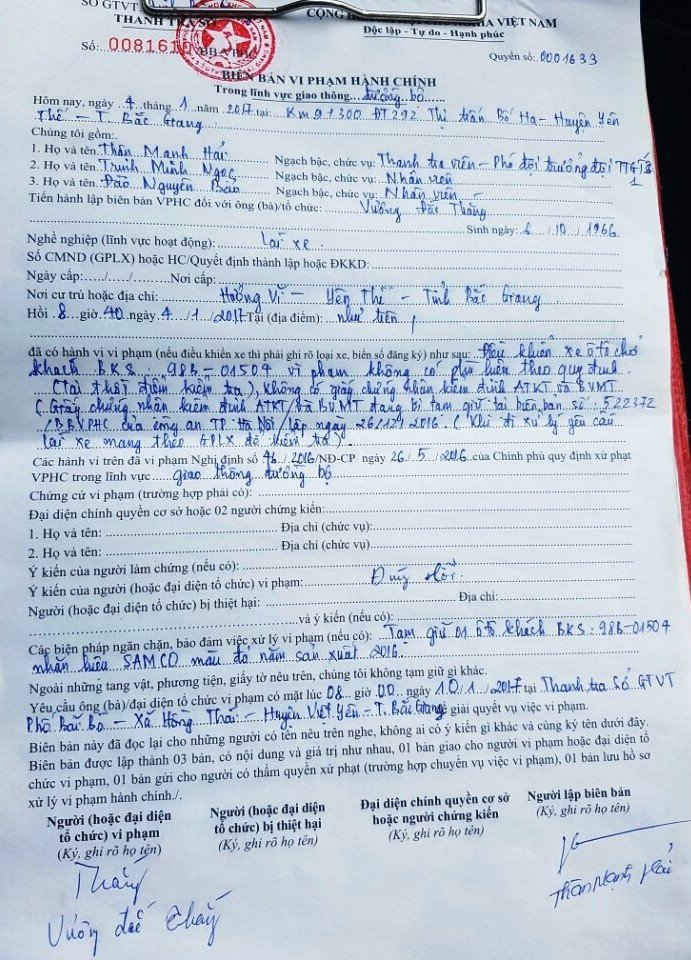 SỞ GTVT
THANH TRA SỞ
CỘNG HÒA XÃ HỘI CHỦ NGHĨA VIỆT NAM
Độc lập - Tự do - Hạnh phúc
Số: 008161
Quyển số: 0001633
BIÊN BẢN VI PHẠM HÀNH CHÍNH
Trong lĩnh vực giao thông đường bộ
Hôm nay, ngày 4 tháng 1 năm 2017 tại: Km91300 ĐT292 Thị trấn Bố Hạ - Huyện Yên
Thế - T. Bắc Giang
Chúng tôi gồm:
1. Họ và tên: Thân Mạnh Hải Ngạch bậc, chức vụ: Thanh tra viên - Phó đội trưởng đội
2. Họ và tên: Trịnh Minh Ngọc Ngạch bậc, chức vụ: Nhân viên
3. Họ và tên: Đào Nguyên Bảo Ngạch bậc, chức vụ: Nhân viên
Tiến hành lập biên bản VPHC đối với ông (bà)/tổ chức: Vương Đắc Thắng
Sinh ngày: 6 / 10 / 1966
Nghề nghiệp (lĩnh vực hoạt động): Lái xe
Số CMND (GPLX) hoặc HC/Quyết định thành lập hoặc ĐKKD:
Ngày cấp: / / Nơi cấp:
Nơi cư trú hoặc địa chỉ: Hương Vĩ - Yên Thế - Tỉnh Bắc Giang
Hồi 8 giờ 40 ngày 4 / 1 / 2017 Tại (địa điểm): như trên
đã có hành vi vi phạm (nếu điều khiển xe thì phải ghi rõ loại xe, biển số đăng ký) như sau: Điều khiển xe ô tô chở
khách BKS: 98B-01504 vi phạm không có phù hiệu theo quy định
(Tại thời điểm kiểm tra), không có giấy chứng nhận kiểm định ATKT và BVMT
(Giấy chứng nhận kiểm định ATKT và BVMT đang bị tạm giữ tại biên bản số: 522372
/BBVPHC của công an TP Hà Nội lập ngày 26/12/2016. (Khi đi xử lý yêu cầu
lái xe mang theo GPLX để kiểm tra).
Các hành vi trên đã vi phạm Nghị định số 46/2016/NĐ-CP ngày 26/5/2016 của Chính phủ quy định xử phạt
VPHC trong lĩnh vực giao thông đường bộ
Chứng cứ vi phạm (trường hợp phải có):
Đại diện chính quyền cơ sở hoặc 02 người chứng kiến:
1. Họ và tên: Địa chỉ (chức vụ):
2. Họ và tên: Địa chỉ (chức vụ)
Ý kiến của người làm chứng (nếu có):
Ý kiến của người (hoặc đại diện tổ chức) vi phạm:
Người (hoặc đại diện tổ chức) bị thiệt hại: Địa chỉ:
và ý kiến (nếu có):
Các biện pháp ngăn chặn, bảo đảm việc xử lý vi phạm (nếu có): Tạm giữ 01 ô tô khách BKS: 98B-01504
nhãn hiệu SAMCO màu đỏ năm sản xuất 2016
Ngoài những tang vật, phương tiện, giấy tờ nêu trên, chúng tôi không tạm giữ gì khác.
Yêu cầu ông (bà)/đại diện tổ chức vi phạm có mặt lúc 08 giờ 00 ngày 10/1/2017 tại Thanh tra Sở GTVT
Phố - Xã Hồng Thái - Huyện Việt Yên - T. Bắc Giang để giải quyết vụ việc vi phạm.
Biên bản này đã đọc lại cho những người có tên nêu trên nghe, không ai có ý kiến gì khác và cùng ký tên dưới đây.
Biên bản được lập thành 03 bản, có nội dung và giá trị như nhau, 01 bản giao cho người vi phạm hoặc đại diện tổ
chức vi phạm, 01 bản gửi cho người có thẩm quyền xử phạt (trường hợp chuyển vụ việc vi phạm), 01 bản lưu hồ sơ
xử lý vi phạm hành chính./.
Người (hoặc đại diện tổ chức) vi phạm
(Ký, ghi rõ họ tên)
Người (hoặc đại diện tổ chức) bị thiệt hại
(Ký, ghi rõ họ tên)
Đại diện chính quyền cơ sở hoặc người chứng kiến
(Ký, ghi rõ họ tên)
Người lập biên bản
(Ký, ghi rõ họ tên)
Thắng
Vương đắc Thắng
Thân Mạnh Hải